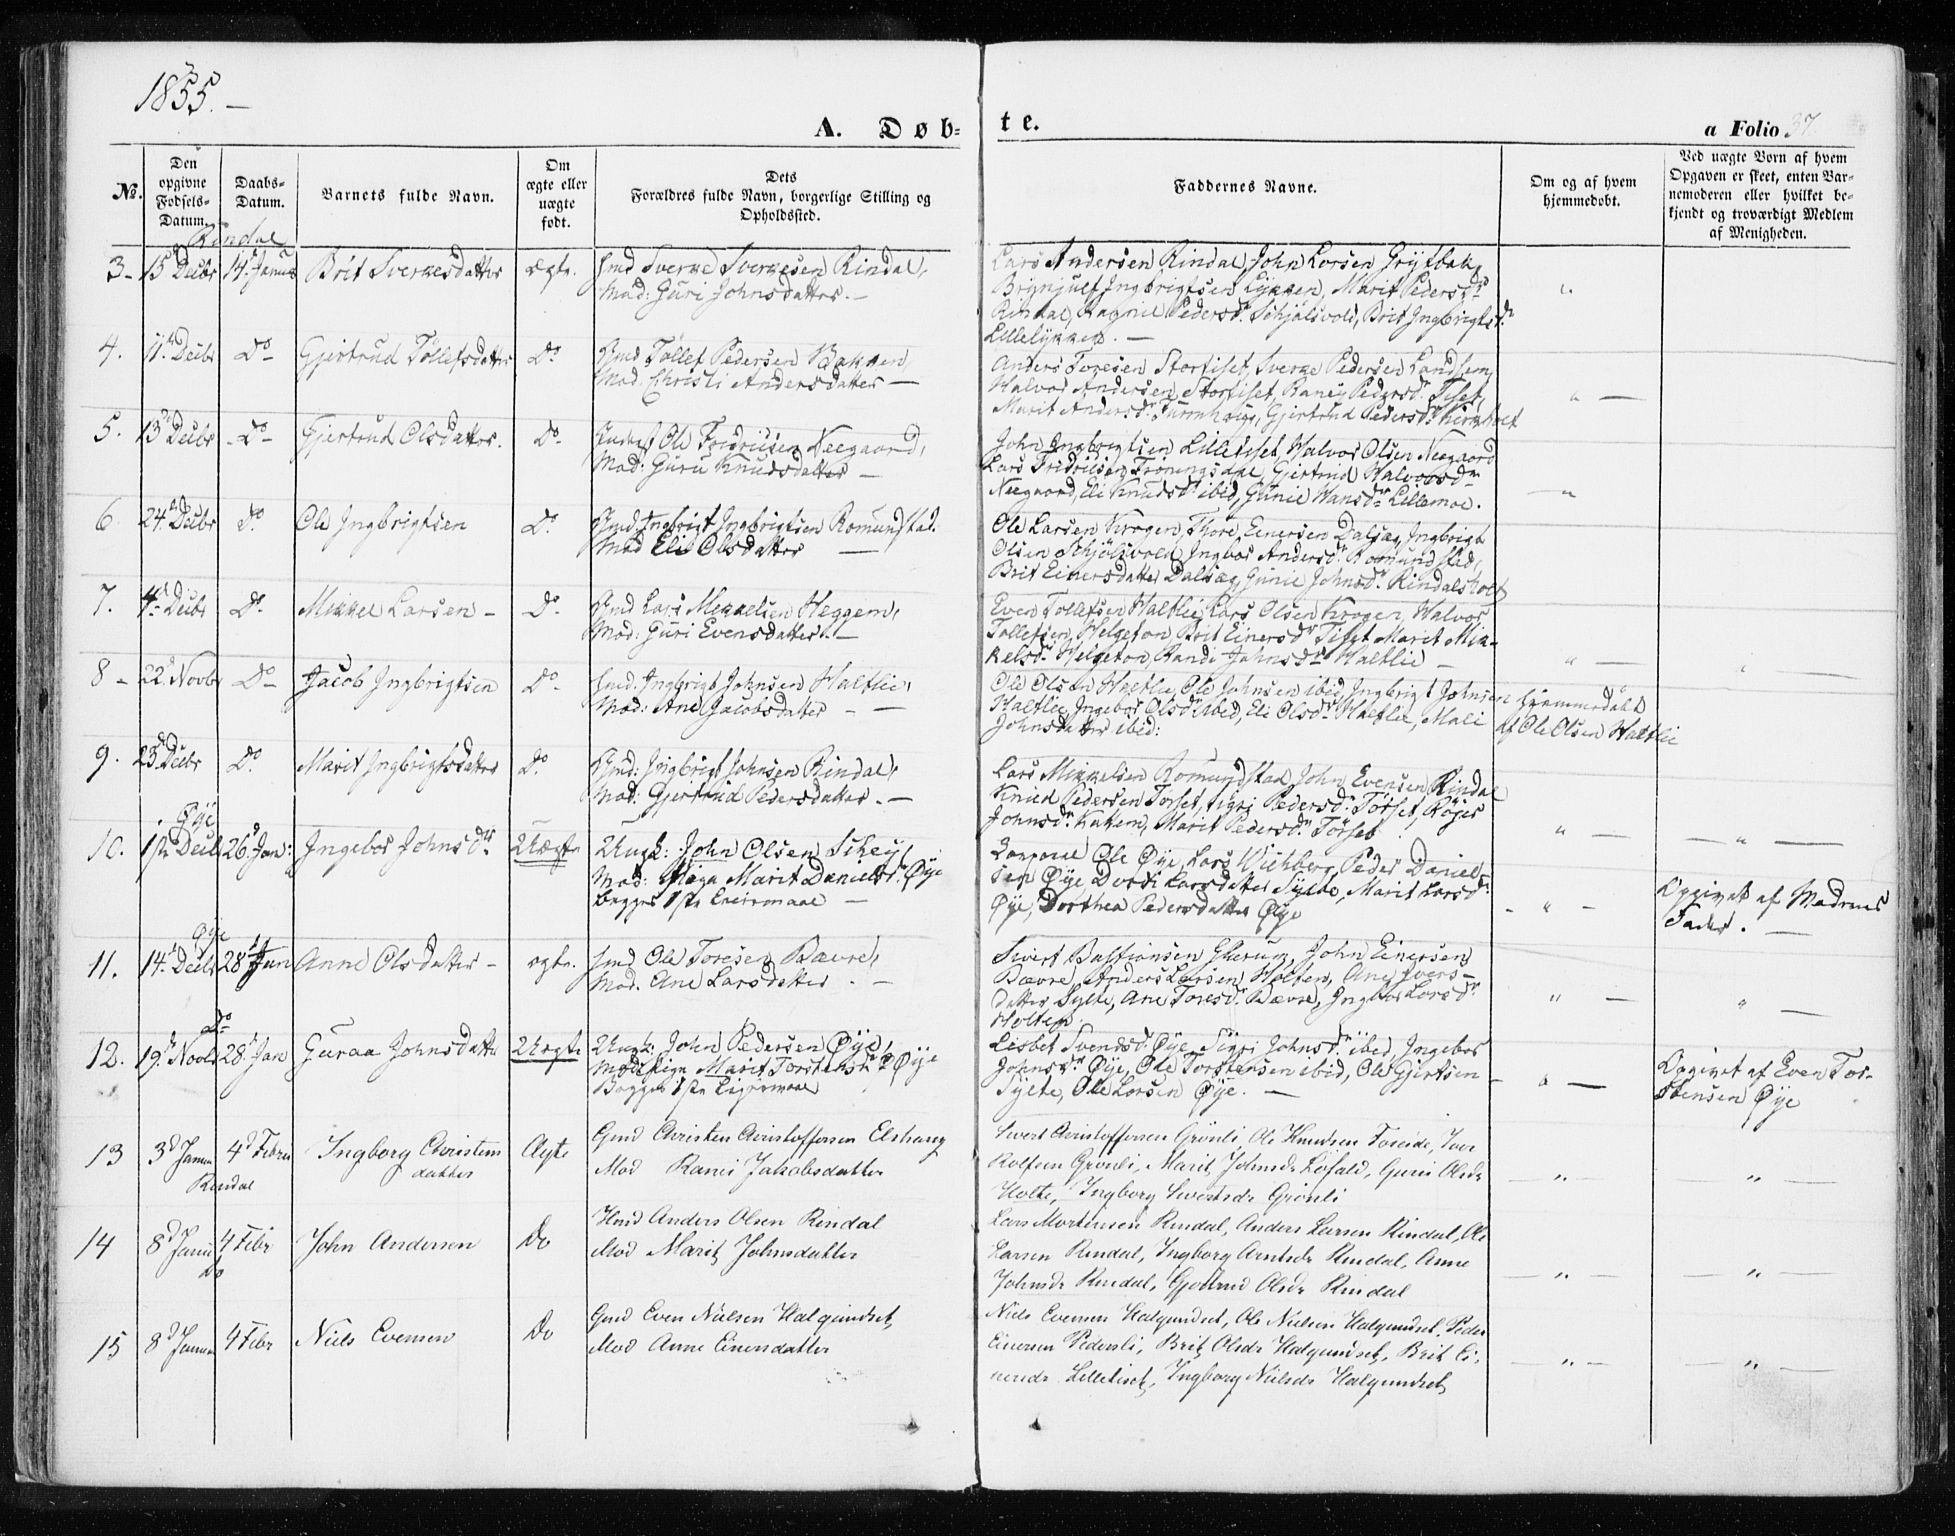 1855. —
A. Døb=
te.
a Folio 37.
No.
Den opgivne Fødsels-Datum.
Daabs-Datum.
Barnets fulde Navn.
Om ægte eller uægte født.
Dets Forældres fulde Navn, borgerlige Stilling og Opholdssted.
Faddernes Navne.
Om og af hvem hjemmedøbt.
Ved uægte Børn af hvem Opgaven er skeet, enten Barnemoderen eller hvilket bekjendt og troværdigt Medlem af Menigheden.
Rindal
3- 15 Decbr 14. Januar Brit Sverkesdatter ægte. Gmd Sverke Sverkesen Rindal,
Mod: Guri Johnsdatter. —
Lars Andersen Rindal, John Larsen Grytbak,
Brynjulf Ingbrigtsen Lykken, Marit Pedersdr
Rindal, Ragnil Pedersdr Schjølsvold, Brit Ingbrigtsdr
Lillelykken. —
4. 11. Decbr Do Gjertrud Tollefsdatter Do Gmd Tollef Pedersen Bakken,
Mod. Christi Andersdatter —
Anders Toresen Stortiset, Sverke Pedersen Landsem,
Halvor Andersen Stortiset, Raney Pedersdr Tiset,
Marit Andersdr Furuhaug, Gjertrud Pedersdr Kirkholt
5. 13 Decbr Do Gjertrud Olsdatter. Do. Ole Fredriksen Neegaard,
Mod: Guru Knudsdatter —
John Ingbrigtsen Lilletiset, Halvor Olsen Neegaard
Lars Fredriksen Trøningsdal, Gjertrud Halvorsdr
Neegaard, Eli Knudsdr ibid, Gunie Hansdr Lillemoe.
6. 24 Decbr Do. Ole Ingbrigtsen Do. Gmd Ingbrigt Ingbrigtsen Romundstad.
Mod Eli Olsdatter —
Ole Larsen Krogen, Thore Einersen Dalsæg, Ingbrigt
Olsen Schjølsvold, Ingbor Andersdr Romundstad,
Brit Einersdatter Dalsæg, Gunie Johnsdr Rindalsholt
7. 4. Decbr Do. Mikkel Larsen — Do. Gmd Lars Mikkelsen Heggem,
Mod: Guri Evensdatter. —
Even Tollefsen Haltlie, Lars Olsen Krogen, Halvor
Tollefsen Helgeton, Brit Einersdr Tiset Marit Mik-
kelsdr Helgeton, Randi Johnsdr Haltlie —
8 - 22 Novbr Do- Jacob Ingbrigtsen Do. Gmd. Ingbrigt Johnsen Haltlie,
Mod: Ane Jacobsdatter —
Ole Olsen Haltlie, Ole Johnsen ibid, Ingbrigt Johnsen
Haltlie, Ingebor Olsdr ibid, Eli Olsdr Haltlie, Mali
Johnsdatter ibid:
hjemmedøbt
af Ole Olsen Haltlie
9. 23 Decbr Do. Marit Ingbrigtsdatter Do. Gmd: Ingbrigt Johnsen Rindal,
Mod: Gjertrud Pedersdatter. —
Lars Mikkelsen Romundstad, John Evensen Rindal
Knud Pedersen Torset, Sigri Pedersdr Torset,
Johnsdr Kattem, Marit Pedersdr Torset
Øye
10. 1ste Decbr 26. Jan: Ingebor Johnsdr Uægte Ungk: John Olsen
Mod: Pige Marit Danielsdr Øye
begges 1ste Leiermaal —
Ole Øye, Lars Wichberg, Peder Daniel-
sen Øye Dorti Larsdatter Sylte, Marit Larsdr
Øye, Dorthea Pedersdatter Øye
Opgivet af Moderens
Fader. —
Øye
11. 14. Decbr 28 Jan Anne Olsdatter — ægte. Gmd Ole Toresen Bævre,
Mod. Ane Larsdatter. —
Sivert Bastiansen Glærum, John Einersen
Bævre, Anders Larsen Holten, Ane Ivers-
datter Sylte, Ane Toresdr Bævre, Ingbor Larsdr
Holten.
Do
12. 19. Novbr 28. Jan Guraa Johnsdatter Uægte Ungk: John Pedersen Øye,
Mod: Pige Marit Torstensdr Øye
Begges 1ste Leiermaal
Lisbet Svendsdr Øye, Sigri Johnsdr ibid, Ingebor
Johnsdr Øye, Ole Torstensen ibid, Ole Gjertsen
Sylte, Ole Larsen Øye. —
Opgivet af Even Tor-
stensen Øye
13 3d Januar 4d Februar Ingborg Christens
datter Ægte Gmd Christen Christoffersen Elshaug
Mod Ranei Jakobsdatter
Sivert Christoffersen Grønli, Ole Knudsen Foseide, Iver
Rolfsen Grønli, Marit Johnsdr Løfald, Guru Olsdr
Holte, Ingborg Sivertsdr Grønli
Rindal
14 8d Januar 4 Febr John Andersen Do Gmd Anders Olsen Rindal
Mod Marit Johnsdatter
Lars Mortensen Rindal, Anders Larsen Rindal, Ole
Larsen Rindal, Ingborg Arntsdr Rindal, Anne
Johnsdr Rindal, Gjertrud Olsdr Rindal
Do
15 8d Januar 4 Febr Niels Evensen Do Gmd Even Nielsen Halgundset,
Mod Anne Einersdatter
Niels Evensen Halgundset, Ole Nielsen Halgundset, Peder
Einersen Pedersli, Brit Olsdr Halgundset, Brit Ei-
nersdr Lilletiset, Ingborg Nielsdr Halgundset